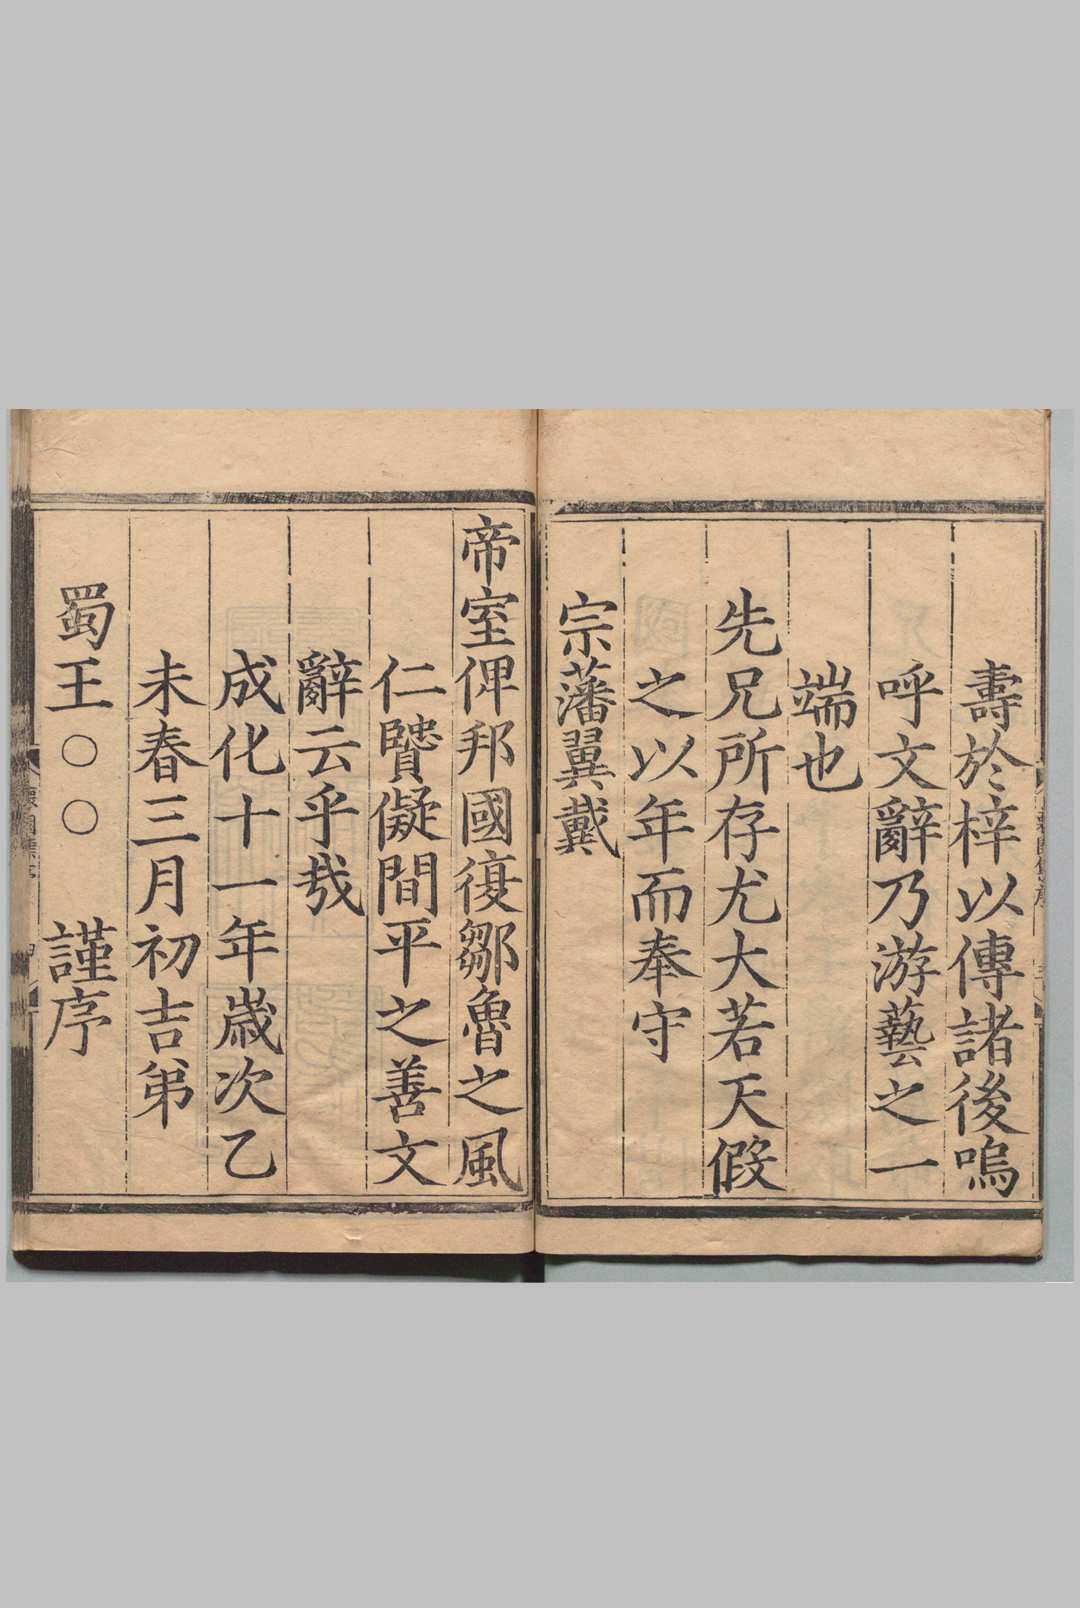 壽於梓以傳諸後嗚
呼文辭乃游藝之一
端也
先兄所存尤大若天假
之以年而奉守
宗藩翼戴
帝室俾邦國復鄒魯之風
仁賢儗間平之善文
辭云乎哉
成化十一年歲次乙
未春三月初吉弟
蜀王○○　謹序